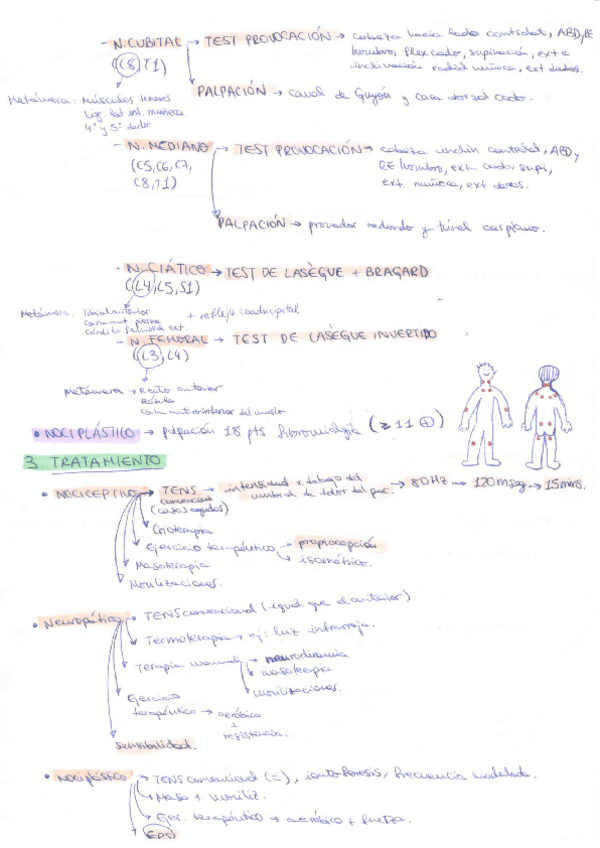 - N. CUBITAL → TEST PROVOCACIÓN → cabeza hacia lado contralat, ABD, RE
hombro, flex codo, supinación, ext e
inclinación radial muñeca, ext dedos.
(C8, T1)
PALPACIÓN → canal de Guyón y cara dorsal codo.
Metámera: Músculos tenares
Lig. lat int. muñeca
4º y 5º dedo
- N. MEDIANO → TEST PROVOCACIÓN → cabeza inclin contralat, ABD y
RE hombro, ext codo, supi,
ext. muñeca, ext dedos.
(C5, C6, C7,
C8, T1)
PALPACIÓN → pronador redondo y túnel carpiano.
- N. CIÁTICO → TEST DE LASÈGUE + BRAGARD
(L4, L5, S1)
Metámera: Tibial anterior + reflejo cuadricipital
Cara int pierna
Cóndilo femoral ext.
- N. FEMORAL → TEST DE LASÈGUE INVERTIDO
(L3, L4)
Metámera → Recto anterior
Rótula
Cara anteroinferior del muslo
• NOCIPLÁSTICO → palpación 18 pts fibromialgia (≥ 11 +)
3. TRATAMIENTO
• NOCICEPTIVO → TENS → intensidad x debajo del → 80Hz → 120 mseg → 15 mins.
convencional umbral de dolor del pac.
(casos agudos)
Crioterapia
Ejercicio terapéutico → propiocepción
isométrico.
Masoterapia
Movilizaciones.
• Neuropático → TENS convencional (igual que el anterior)
Termoterapia → ej: luz infrarroja.
Terapia manual → neurodinamia
masoterapia
movilizaciones.
Ejercicio
terapéutico → aeróbico
+
resistencia.
sensibilidad.
• Nociplástico → TENS convencional (=), iontoforesis, frecuencia modulada.
Maso + moviliz.
Ejer. terapéutico → aeróbico + fuerza.
EPS